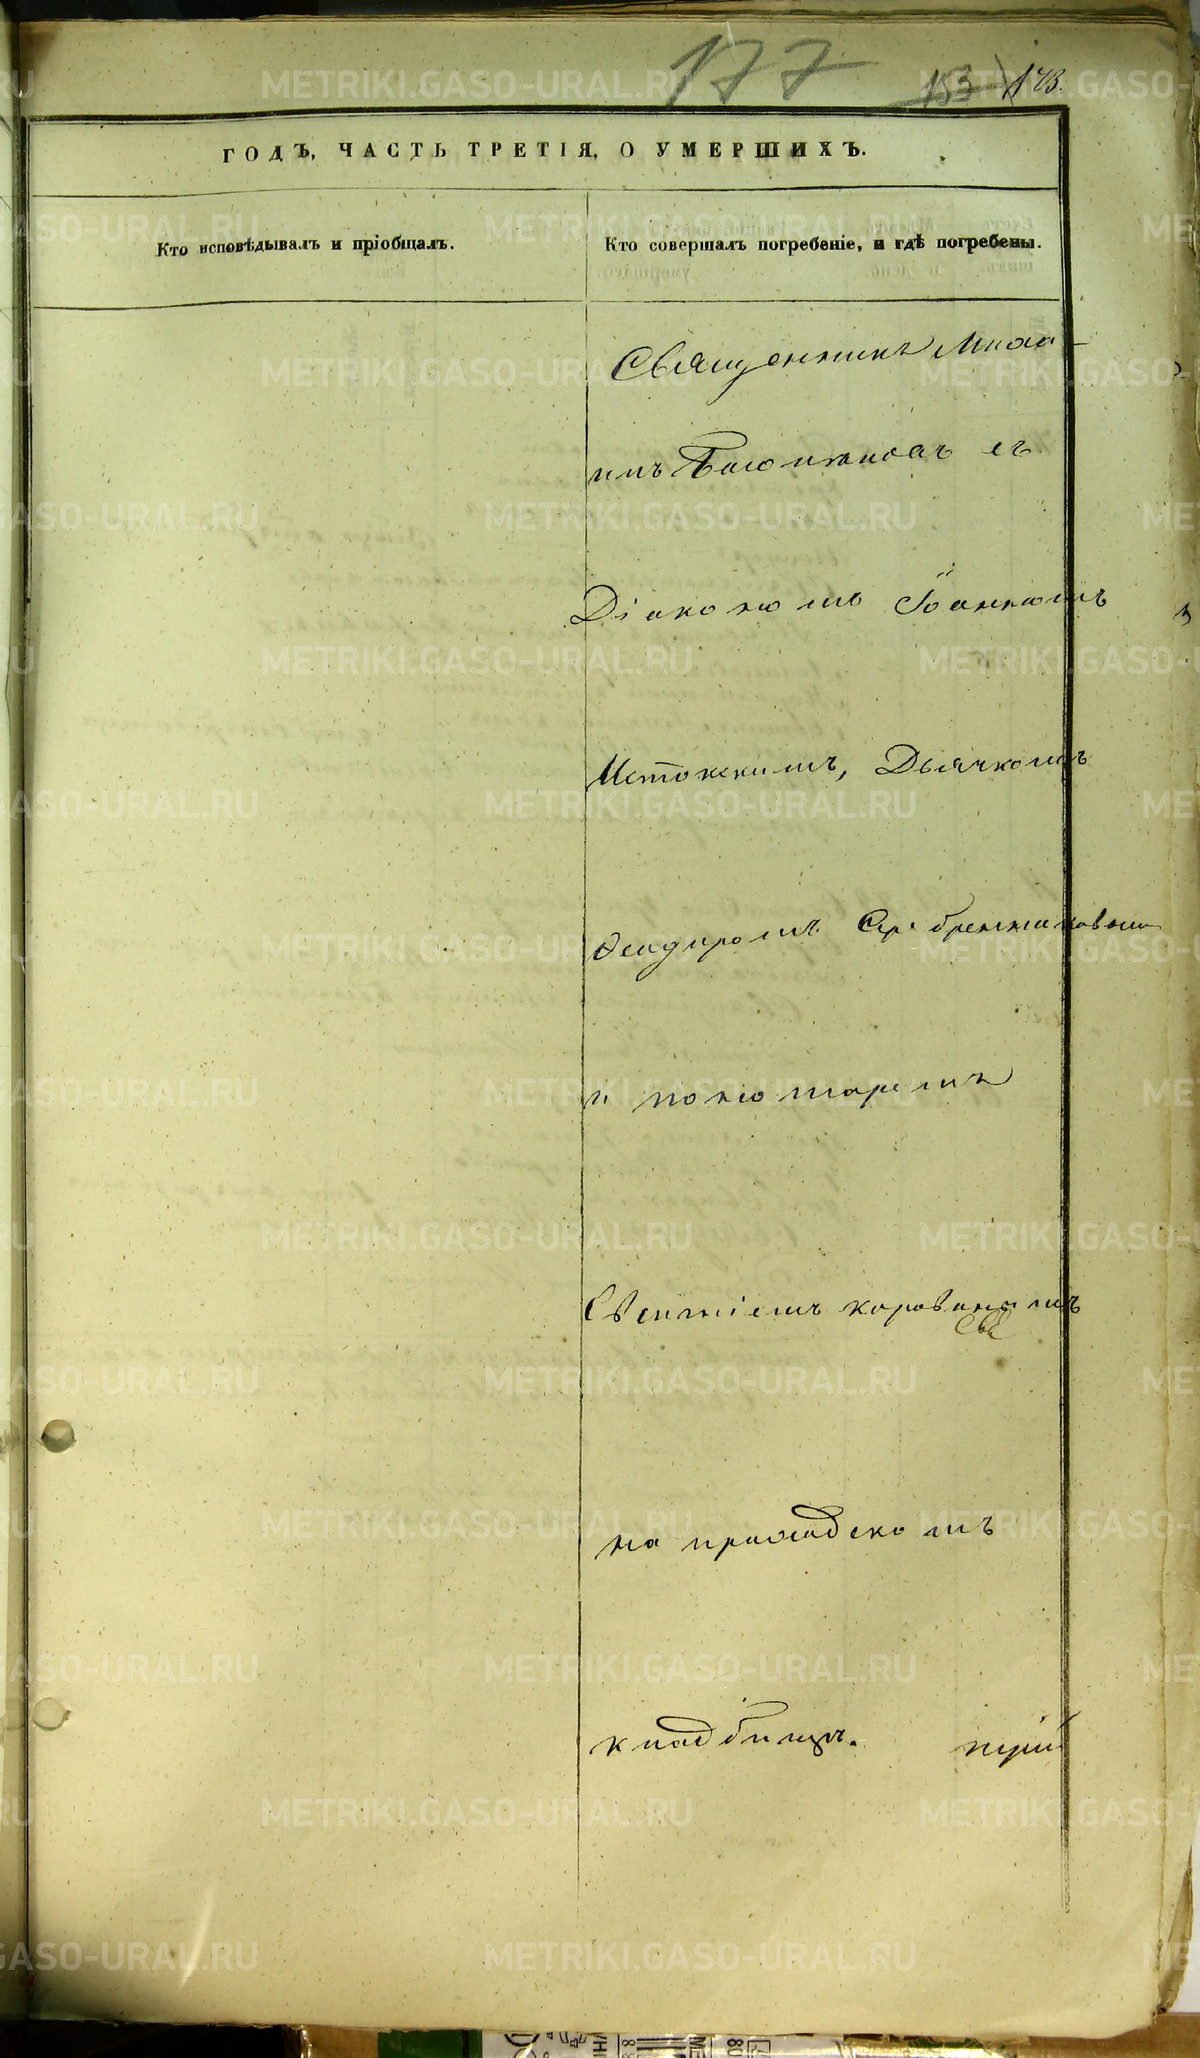 177
153 173.
ГОДЪ, ЧАСТЬ ТРЕТІЯ, О УМЕРШИХЪ.
Кто исповѣдывалъ и пріобщалъ.
Кто совершалъ погребеніе, и гдѣ погребены.
Священникъ Миха-
илъ съ
Діакономъ Іоанномъ
Истокскимъ, Дьячкомъ
Ѳеодоромъ Серебренниковымъ
и пономаремъ
Евгеніемъ Коровинымъ
на приходскомъ
кладбищѣ.
METRIKI.GASO-URAL.RU